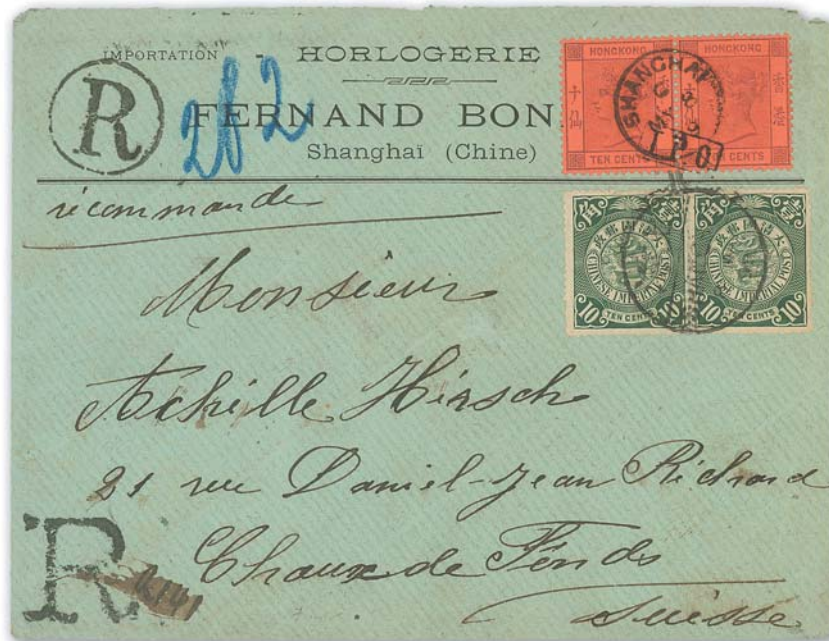 IMPORTATION - HORLOGERIE
R
282
FERNAND BON
Shanghaï (Chine)
récommandé
HONGKONG
十仙
TEN CENTS
HONGKONG
TEN CENTS
SHANGHAI
I.P.O.
大清國郵政
CHINESE IMPERIAL POST
10 TEN CENTS 10
大清國郵政
CHINESE IMPERIAL POST
10 TEN CENTS 10
Monsieur
Achille Hirsch
21 rue Daniel-Jean Richard
Chaux de Fonds
Suisse
R